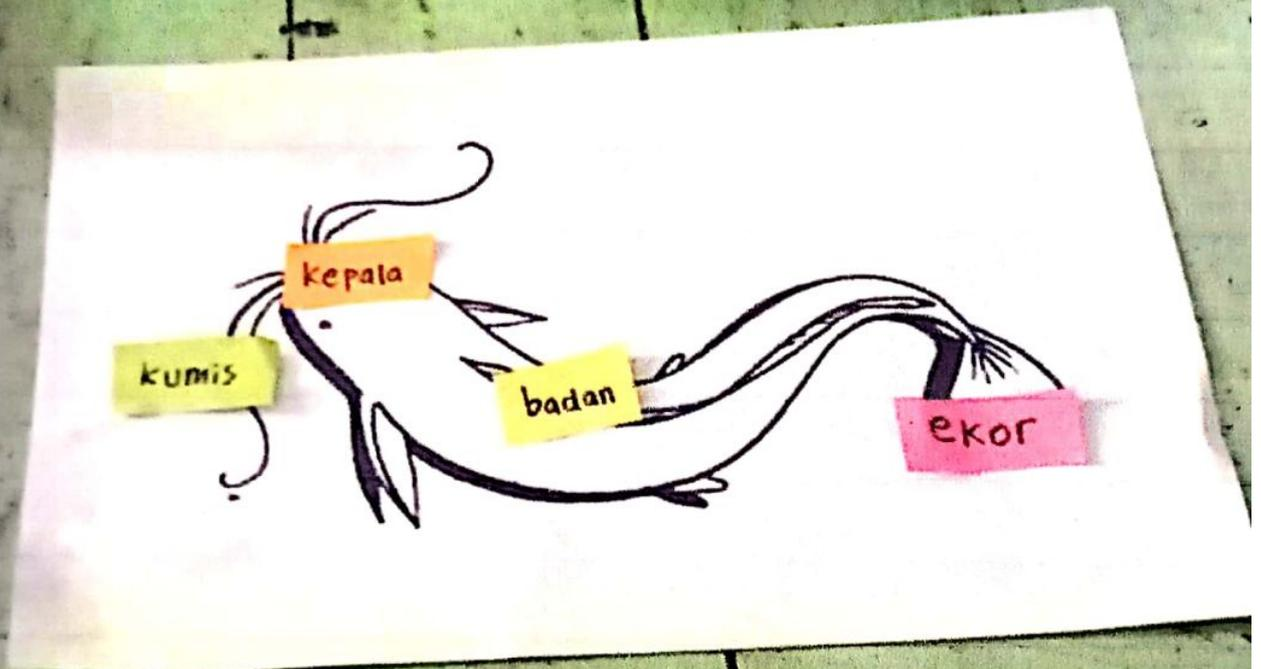 kepala
kumis
badan
ekor